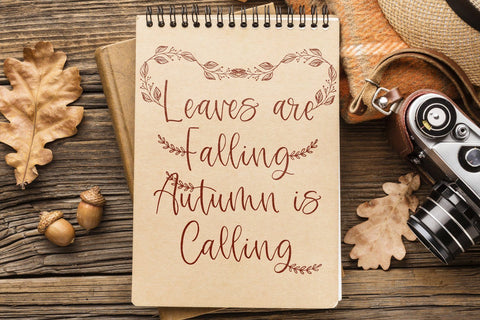 Leaves are
Falling
Autumn is
Calling